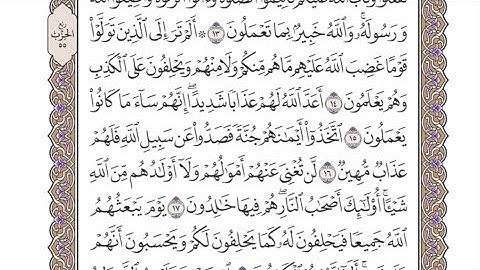 وَرَسُولَهُۥۚ وَٱللَّهُ خَبِيرُۢ بِمَا تَعۡمَلُونَ ١٣ ۞ أَلَمۡ تَرَ إِلَى ٱلَّذِينَ تَوَلَّوۡاْ
قَوۡمًا غَضِبَ ٱللَّهُ عَلَيۡهِم مَّا هُم مِّنكُمۡ وَلَا مِنۡهُمۡ وَيَحۡلِفُونَ عَلَى ٱلۡكَذِبِ
وَهُمۡ يَعۡلَمُونَ ١٤ أَعَدَّ ٱللَّهُ لَهُمۡ عَذَابٗا شَدِيدًاۖ إِنَّهُمۡ سَآءَ مَا كَانُواْ
يَعۡمَلُونَ ١٥ ٱتَّخَذُوٓاْ أَيۡمَٰنَهُمۡ جُنَّةٗ فَصَدُّواْ عَن سَبِيلِ ٱللَّهِ فَلَهُمۡ
عَذَابٞ مُّهِينٞ ١٦ لَّن تُغۡنِيَ عَنۡهُمۡ أَمۡوَٰلُهُمۡ وَلَآ أَوۡلَٰدُهُم مِّنَ ٱللَّهِ
شَيۡـًٔاۚ أُوْلَٰٓئِكَ أَصۡحَٰبُ ٱلنَّارِۖ هُمۡ فِيهَا خَٰلِدُونَ ١٧ يَوۡمَ يَبۡعَثُهُمُ
ٱللَّهُ جَمِيعٗا فَيَحۡلِفُونَ لَهُۥ كَمَا يَحۡلِفُونَ لَكُمۡ وَيَحۡسَبُونَ أَنَّهُمۡ
ربع
الحزب
٥٥